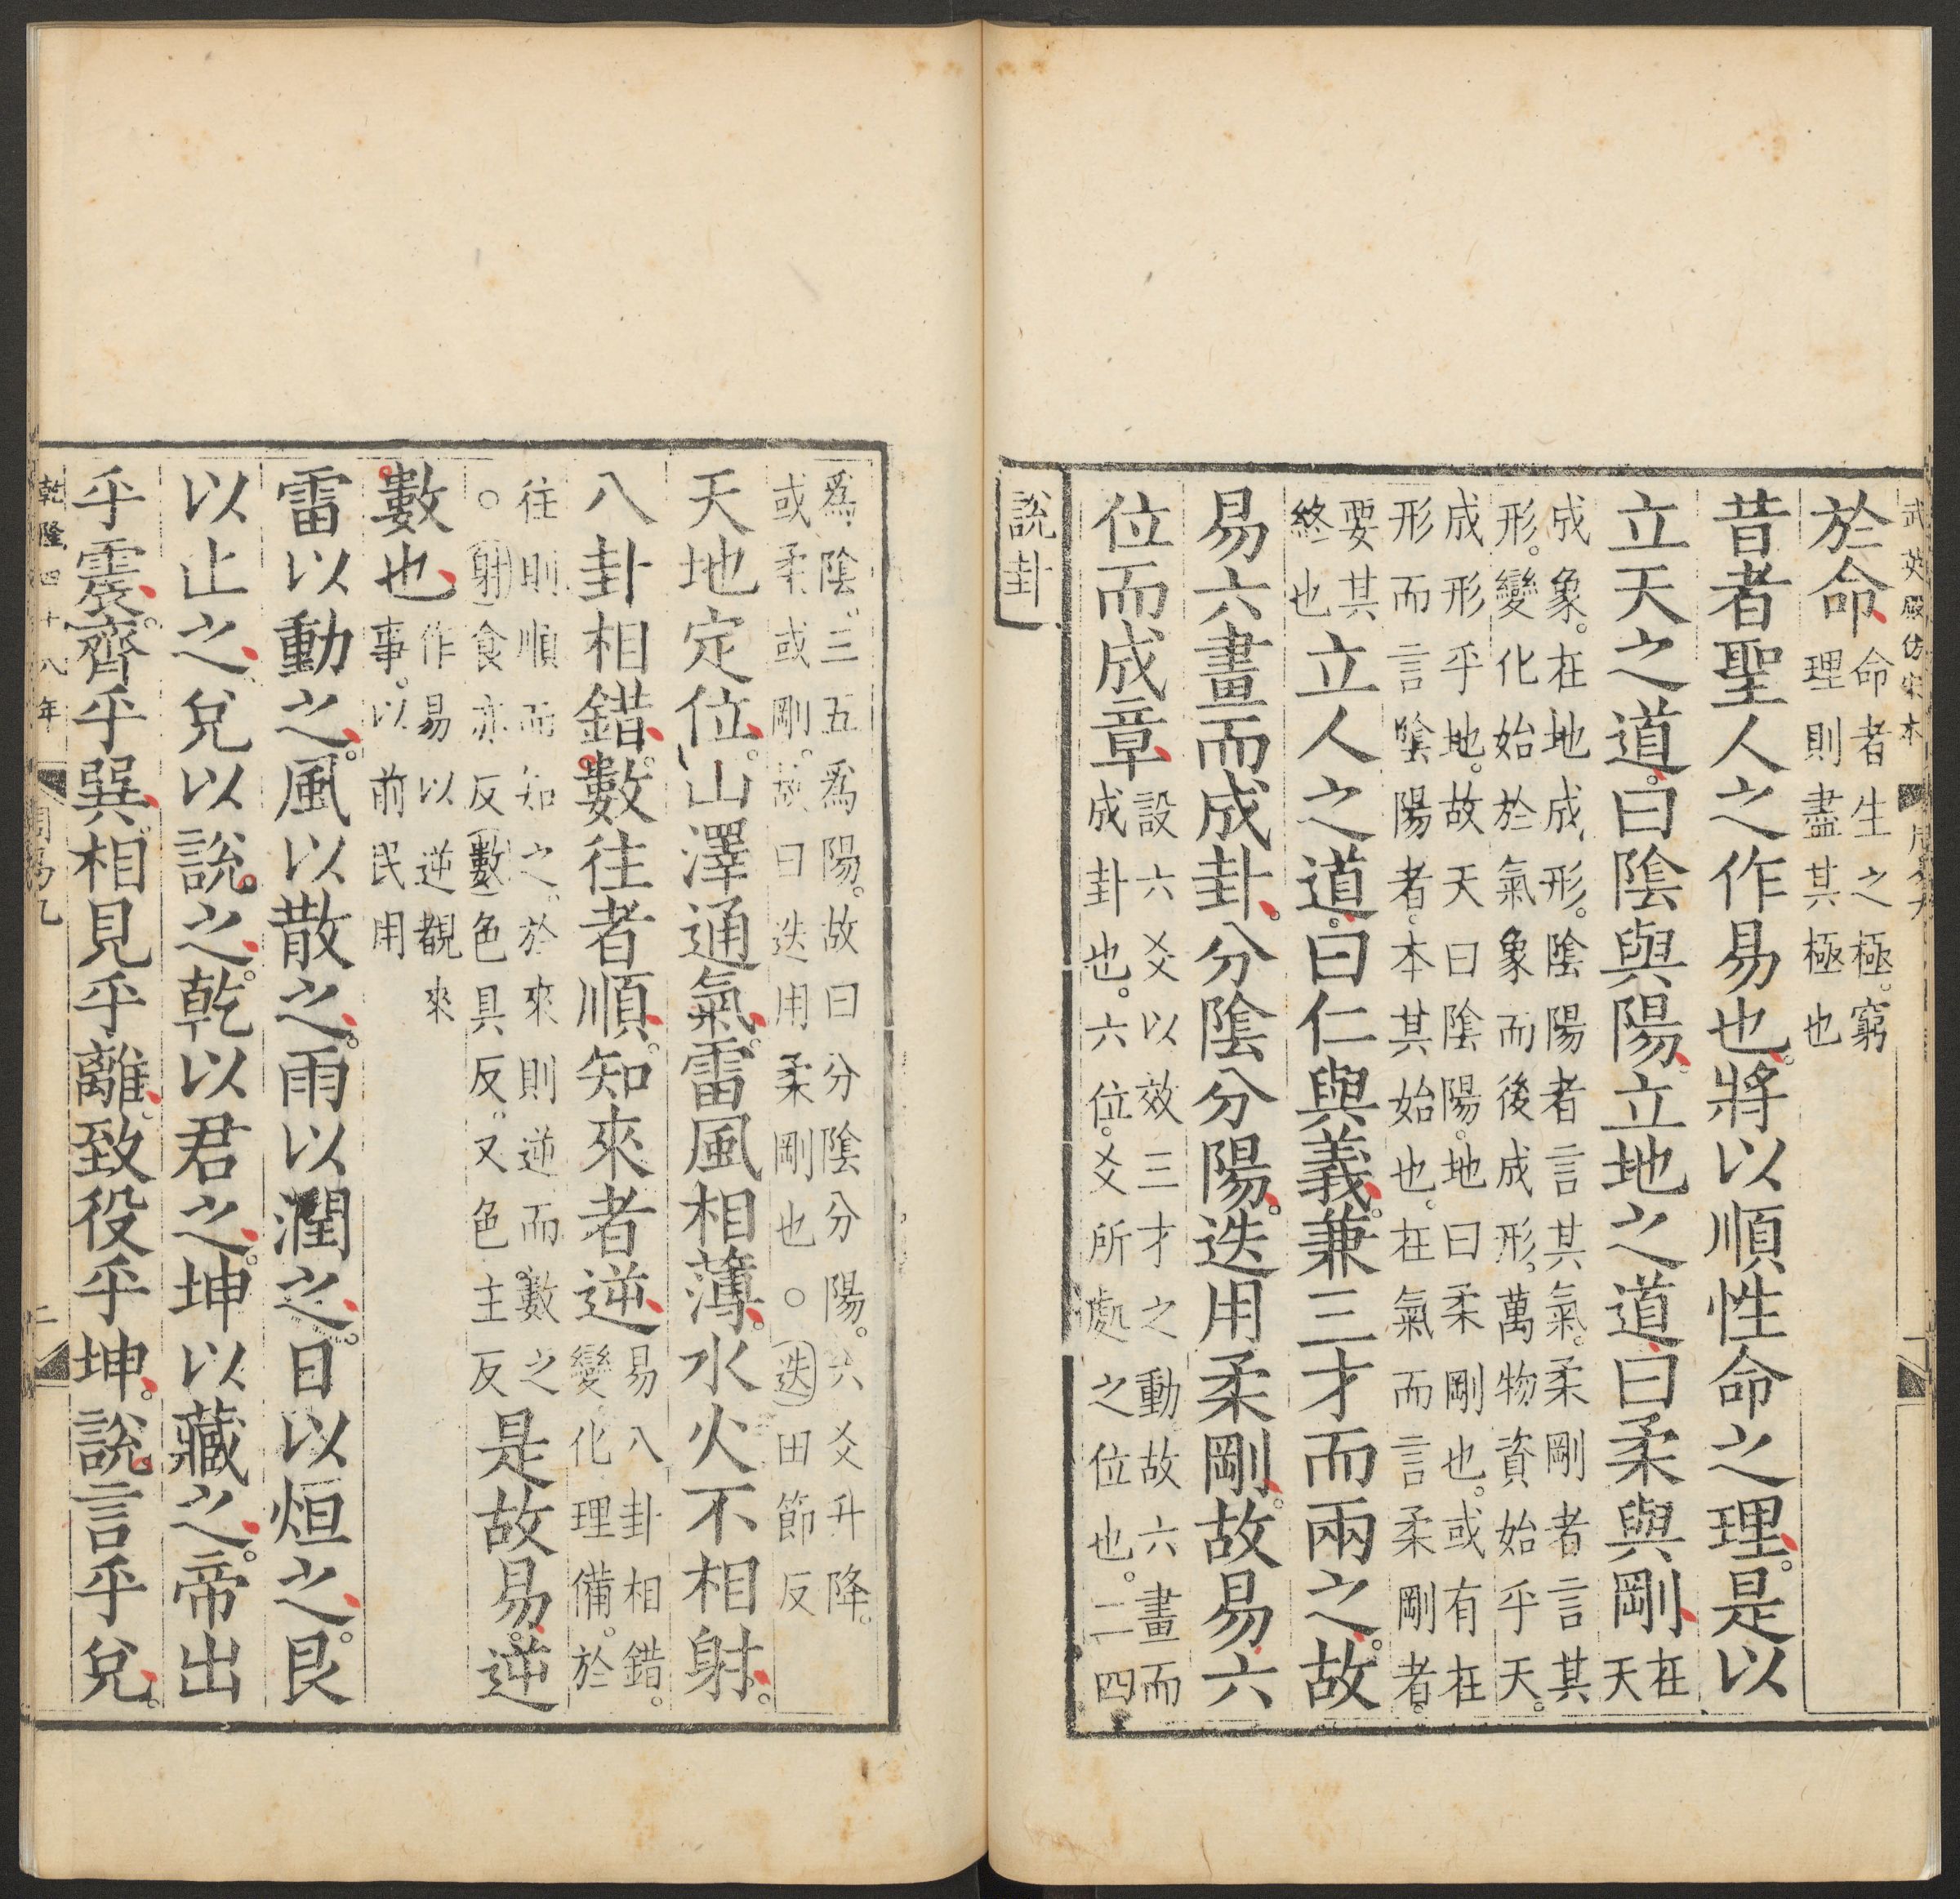 武英殿仿宋本
於命命者生之極。窮理則盡其極也
昔者聖人之作易也。將以順性命之理。是以
立天之道。曰陰與陽。立地之道。曰柔與剛在天
成象。在地成形。陰陽者言其氣。柔剛者言其
形。變化始於氣象而後成形。萬物資始乎天。
成形乎地。故天曰陰陽。地曰柔剛也。或有在
形而言陰陽者。本其始也。在氣而言柔剛者。
要其終也立人之道。曰仁與義。兼三才而兩之。故
易六畫而成卦。分陰分陽。迭用柔剛。故易六
位而成章設六爻以效三才之動故六畫而成卦也。六位。爻所處之位也。二四
說卦
爲陰。三五爲陽。故曰分陰分陽。六爻升降。
或柔或剛。故曰迭用柔剛也○迭田節反
天地定位。山澤通氣。雷風相薄。水火不相射。
八卦相錯。數往者順。知來者逆易八卦相錯。變化理備。於
往則順而知之。於來則逆而數之
○射食亦反數色具反。又色主反是故易。逆
數也作易以逆覩來事。以前民用
雷以動之。風以散之。雨以潤之。日以烜之。艮
以止之。兌以說之。乾以君之。坤以藏之。帝出
乎震。齊乎巽。相見乎離。致役乎坤。說言乎兌。
乾隆四十八年 周易九 二